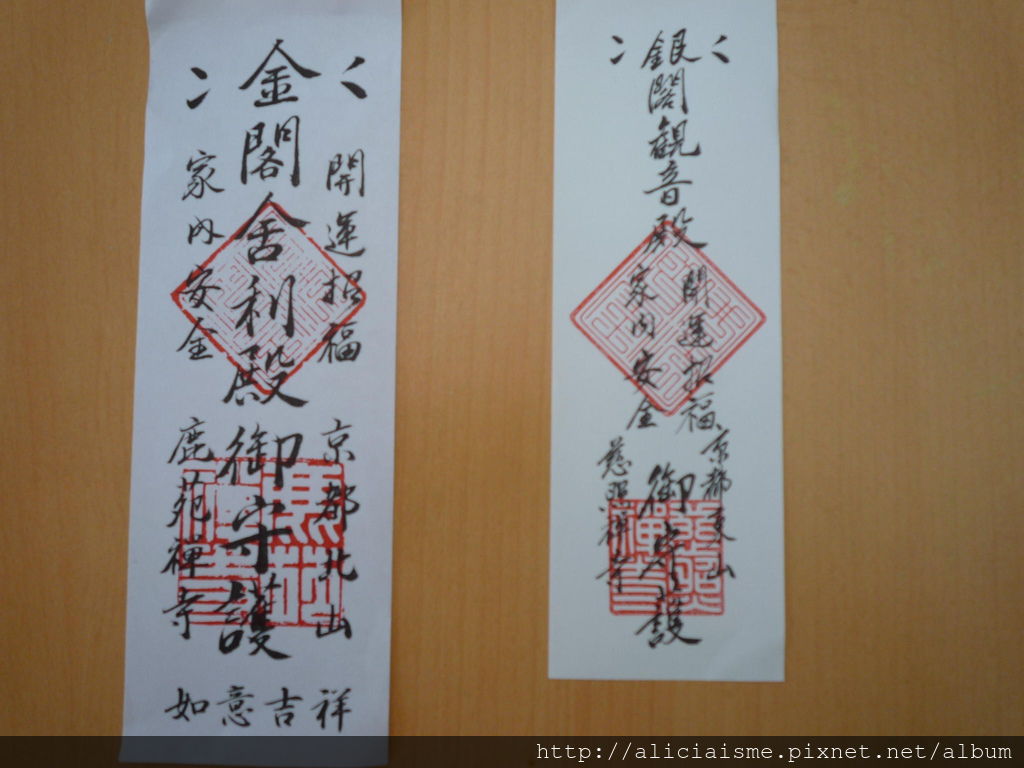 金閣舎利殿御守護
開運招福
家内安全
京都北山
鹿苑禅寺
如意吉祥
銀閣観音殿御守護
開運招福
家内安全
京都東山
慈照禅寺
http://aliciaisme.pixnet.net/album